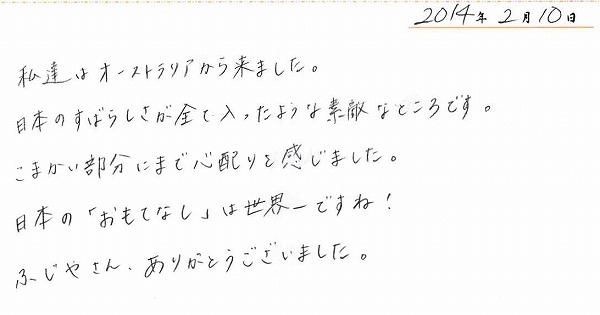 2014年 2月 10日
私達はオーストラリアから来ました。
日本のすばらしさが全て入ったような素敵なところです。
こまかい部分にまで心配りを感じました。
日本の「おもてなし」は世界一ですね!
ふじやさん、ありがとうございました。